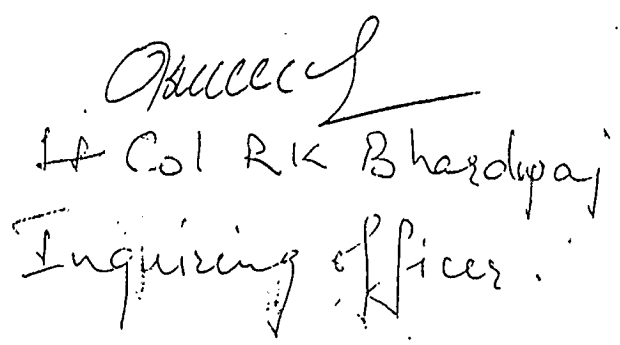 Lt Col RK Bhardwaj
Inquiring Officer.